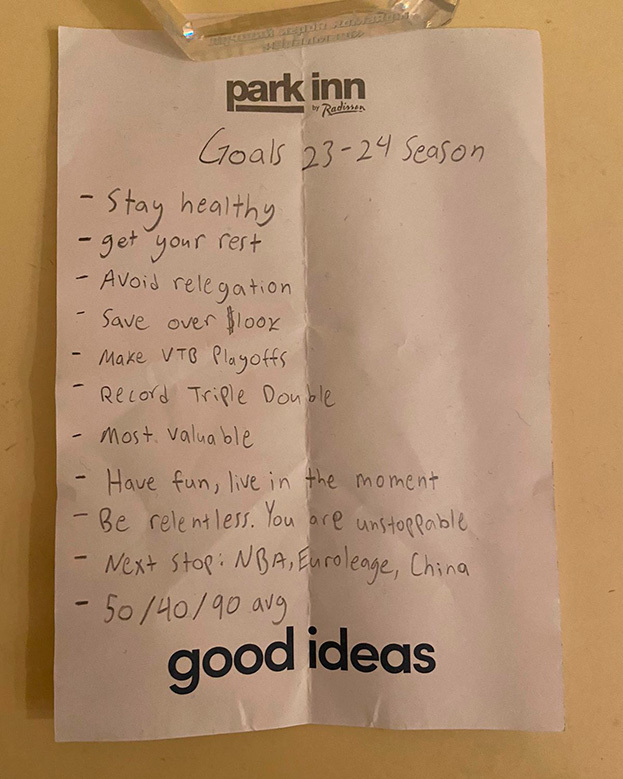 park inn
by Radisson
Goals 23-24 Season
- Stay healthy
- get your rest
- Avoid relegation
- Save over $100k
- Make VTB Playoffs
- Record Triple Double
- Most Valuable
- Have fun, live in the moment
- Be relentless. You are unstoppable
- Next stop: NBA, Euroleage, China
- 50/40/90 avg
good ideas